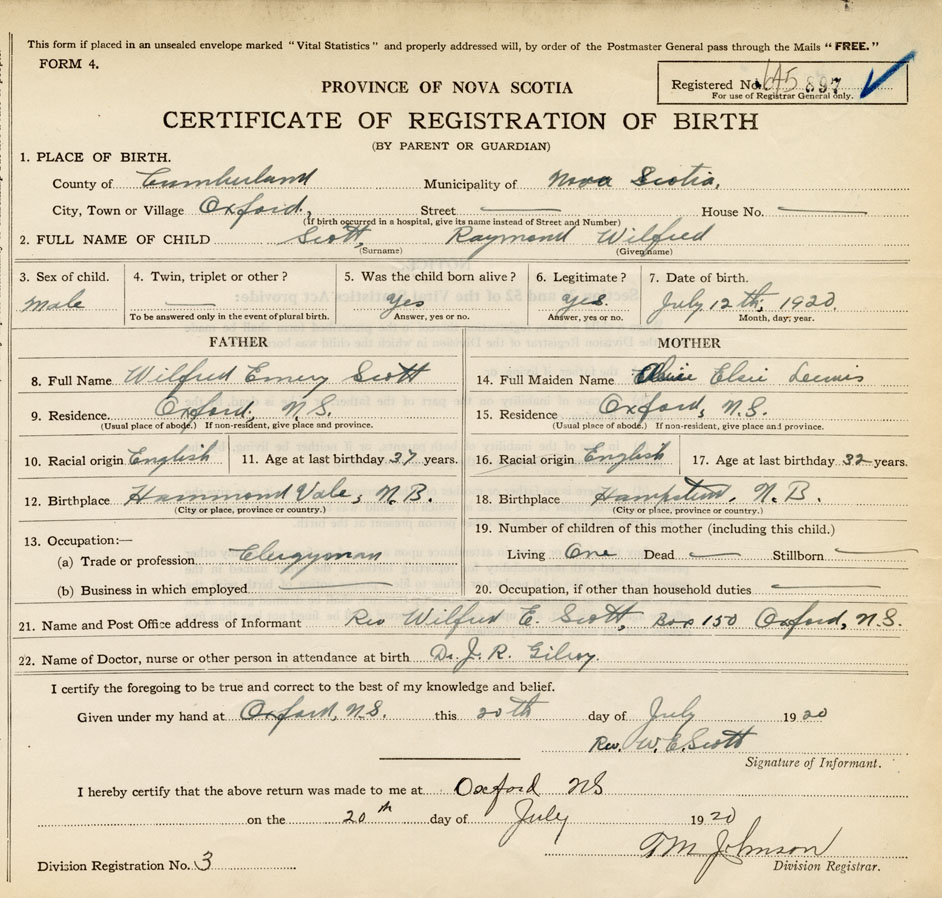 This form if placed in an unsealed envelope marked "Vital Statistics" and properly addressed will, by order of the Postmaster General pass through the Mails "FREE."
FORM 4.
Registered No. 645 897
For use of Registrar General only.
PROVINCE OF NOVA SCOTIA
CERTIFICATE OF REGISTRATION OF BIRTH
(BY PARENT OR GUARDIAN)
1. PLACE OF BIRTH.
County of Cumberland Municipality of Nova Scotia,
City, Town or Village Oxford, Street — House No. —
(If birth occurred in a hospital, give its name instead of Street and Number)
2. FULL NAME OF CHILD Scott, Raymond Wilfred
(Surname) (Given name)
3. Sex of child. 4. Twin, triplet or other? 5. Was the child born alive? 6. Legitimate? 7. Date of birth.
Male — yes yes. July 12th, 1920.
To be answered only in the event of plural birth. Answer, yes or no. Answer, yes or no. Month, day, year.
FATHER MOTHER
8. Full Name Wilfred Emery Scott 14. Full Maiden Name Elsie
9. Residence. Oxford, N.S. 15. Residence Oxford, N.S.
(Usual place of abode.) If non-resident, give place and province. (Usual place of abode.) If non-resident, give place and province.
10. Racial origin English 11. Age at last birthday 37 years. 16. Racial origin English 17. Age at last birthday 32 years.
12. Birthplace Hammond Vale, N.B. 18. Birthplace Hampstead, N.B.
(City or place, province or country.) (City or place, province or country.)
13. Occupation:— 19. Number of children of this mother (including this child.)
(a) Trade or profession Clergyman Living One Dead — Stillborn —
(b) Business in which employed — 20. Occupation, if other than household duties —
21. Name and Post Office address of Informant Rev Wilfred E. Scott, Box 150 Oxford, N.S.
22. Name of Doctor, nurse or other person in attendance at birth Dr. J. R. Gilroy.
I certify the foregoing to be true and correct to the best of my knowledge and belief.
Given under my hand at Oxford, N.S. this 20th day of July 1920
Rev. W. E. Scott
Signature of Informant.
I hereby certify that the above return was made to me at Oxford NS
on the 20th day of July 1920
T M Johnson
Division Registration No. 3 Division Registrar.